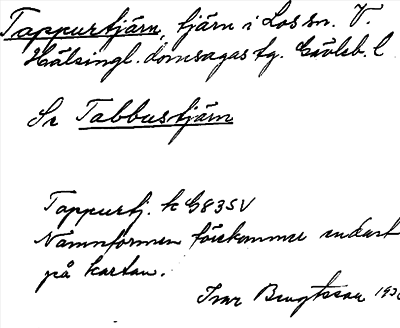 Tappurtjärn, tjärn i Los sn. V.
Hälsingl. domsagas tg. Gävleb. l
Se Tabbustjärn
Tappurtj. k G83SV
Namnformen förekommer endast
på kartan.
Ivar Bengtsson 193